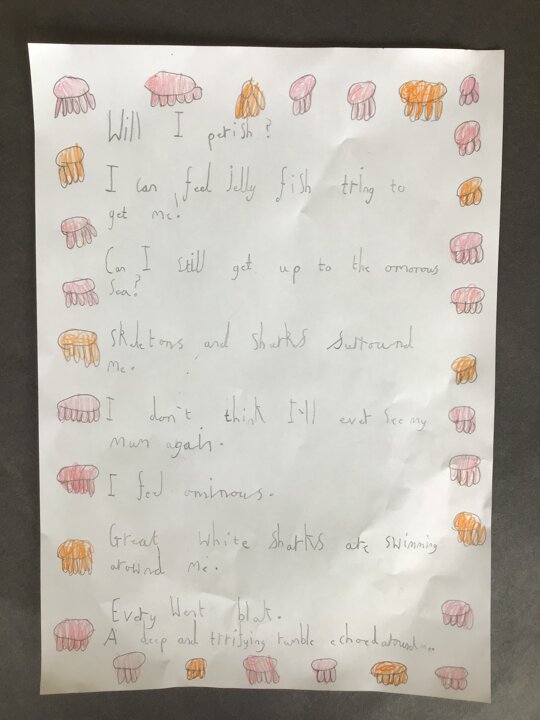 Will I perish?
I can feel jelly fish tring to
get me!
Can I still get up to the omorous
Sea?
Skeletons and sharks surround
me.
I don't think I'll ever see my
mum again.
I feel ominous.
Great white sharks are swimming
around me.
Every Went blak.
A deep and tirrifying rumble echoed around me.